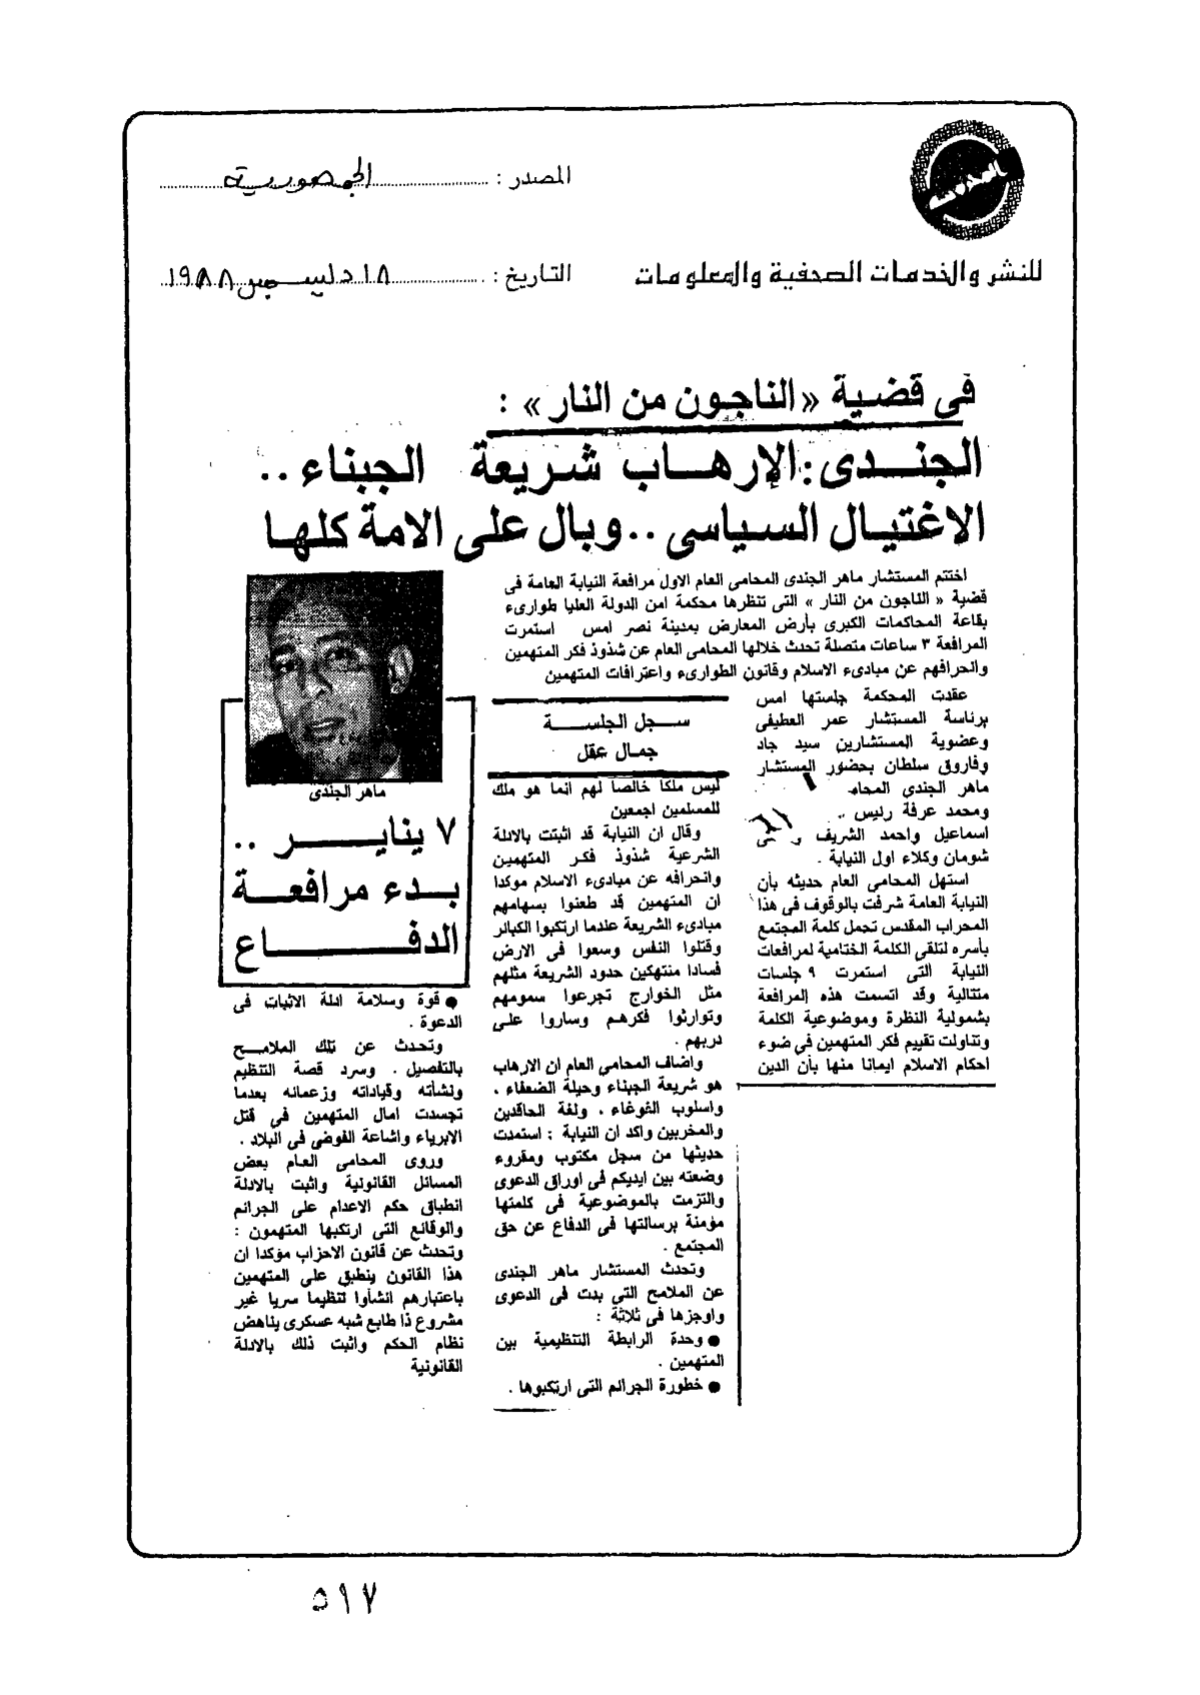 المصدر : الجمهورية
للنشر والخدمات الصحفية والمعلومات
التاريخ : ١٨ دليسمبر ١٩٨٨
فى قضية «الناجون من النار» :
الجندى : الإرهاب شريعة الجبناء ..
الاغتيال السياسى .. وبال على الامة كلها
اختتم المستشار ماهر الجندى المحامى العام الاول مرافعة النيابة العامة فى
قضية « الناجون من النار » التى تنظرها محكمة امن الدولة العليا طوارىء
بقاعة المحاكمات الكبرى بأرض المعارض بمدينة نصر امس استمرت
المرافعة ٣ ساعات متصلة تحدث خلالها المحامى العام عن شذوذ فكر المتهمين
وانحرافهم عن مبادىء الاسلام وقانون الطوارىء واعترافات المتهمين
عقدت المحكمة جلستها امس
برئاسة المستشار عمر العطيفى
وعضوية المستشارين سيد جاد
وفاروق سلطان بحضور المستشار
ماهر الجندى المحام
ومحمد عرفة رئيس ..
اسماعيل واحمد الشريف
شومان وكلاء اول النيابة .
استهل المحامى العام حديثه بأن
النيابة العامة شرفت بالوقوف فى هذا
المحراب المقدس تحمل كلمة المجتمع
بأسره لتلقى الكلمة الختامية لمرافعات
النيابة التى استمرت ٩ جلسات
متتالية وقد اتسمت هذه المرافعة
بشمولية النظرة وموضوعية الكلمة
وتناولت تقييم فكر المتهمين فى ضوء
احكام الاسلام ايمانا منها بأن الدين
سجل الجلسة
جمال عقل
ليس ملكا خالصا لهم انما هو ملك
للمسلمين اجمعين
وقال ان النيابة قد اثبتت بالادلة
الشرعية شذوذ فكر المتهمين
وانحرافه عن مبادىء الاسلام موكدا
ان المتهمين قد طعنوا بسهامهم
مبادىء الشريعة عندما ارتكبوا الكبائر
وقتلوا النفس وسعوا فى الارض
فسادا منتهكين حدود الشريعة مثلهم
مثل الخوارج تجرعوا سمومهم
وتوارثوا فكرهم وساروا على
دربهم .
واضاف المحامى العام ان الارهاب
هو شريعة الجبناء وحيلة الضعفاء ،
واسلوب الغوغاء ، ولغة الحاقدين
والمخربين واكد ان النيابة : استمدت
حديثها من سجل مكتوب ومقروء
وضعته بين ايديكم فى اوراق الدعوى
والتزمت بالموضوعية فى كلمتها
مؤمنة برسالتها فى الدفاع عن حق
المجتمع .
وتحدث المستشار ماهر الجندى
عن الملامح التى بدت فى الدعوى
واوجزها فى ثلاثة :
● وحدة الرابطة التنظيمية بين
المتهمين .
● خطورة الجرائم التى ارتكبوها .
ماهر الجندى
٧ يناير ..
بدء مرافعة
الدفاع
● قوة وسلامة ادلة الاثبات فى
الدعوة .
وتحدث عن تلك الملامح
بالتفصيل . وسرد قصة التنظيم
ونشأته وقياداته وزعمائه بعدما
تجسدت امال المتهمين فى قتل
الابرياء واشاعة الفوضى فى البلاد .
وروى المحامى العام بعض
المسائل القانونية واثبت بالادلة
انطباق حكم الاعدام على الجرائم
والوقائع التى ارتكبها المتهمون :
وتحدث عن قانون الاحزاب مؤكدا ان
هذا القانون ينطبق على المتهمين
باعتبارهم انشأوا تنظيما سريا غير
مشروع ذا طابع شبه عسكرى يناهض
نظام الحكم واثبت ذلك بالادلة
القانونية
٥١٧